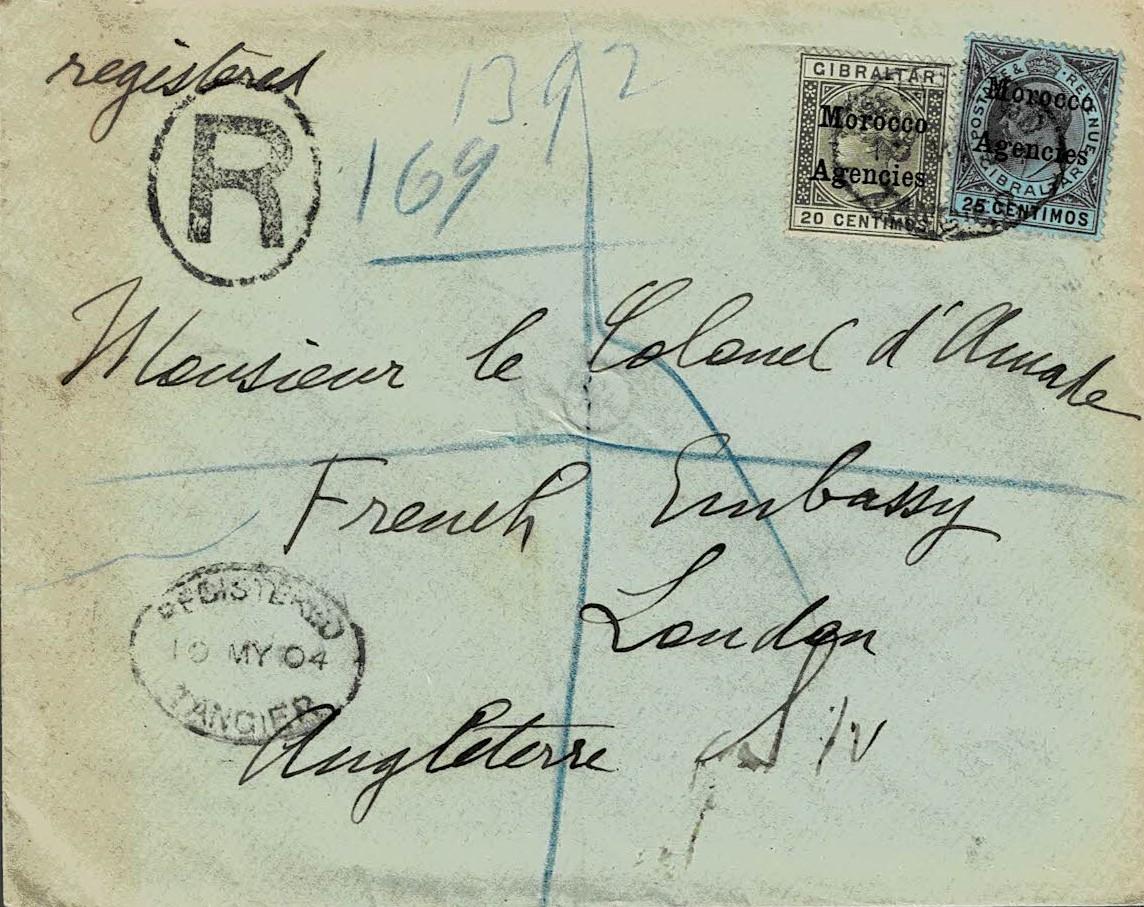 registered
R
1392
169
GIBRALTAR
Morocco
Agencies
20 CENTIMOS
POSTAGE & REVENUE
Morocco
Agencies
GIBRALTAR
25 CENTIMOS
Monsieur le Colonel d'Amade
French Embassy
London
Angleterre
REGISTERED
10 MY 04
TANGIER